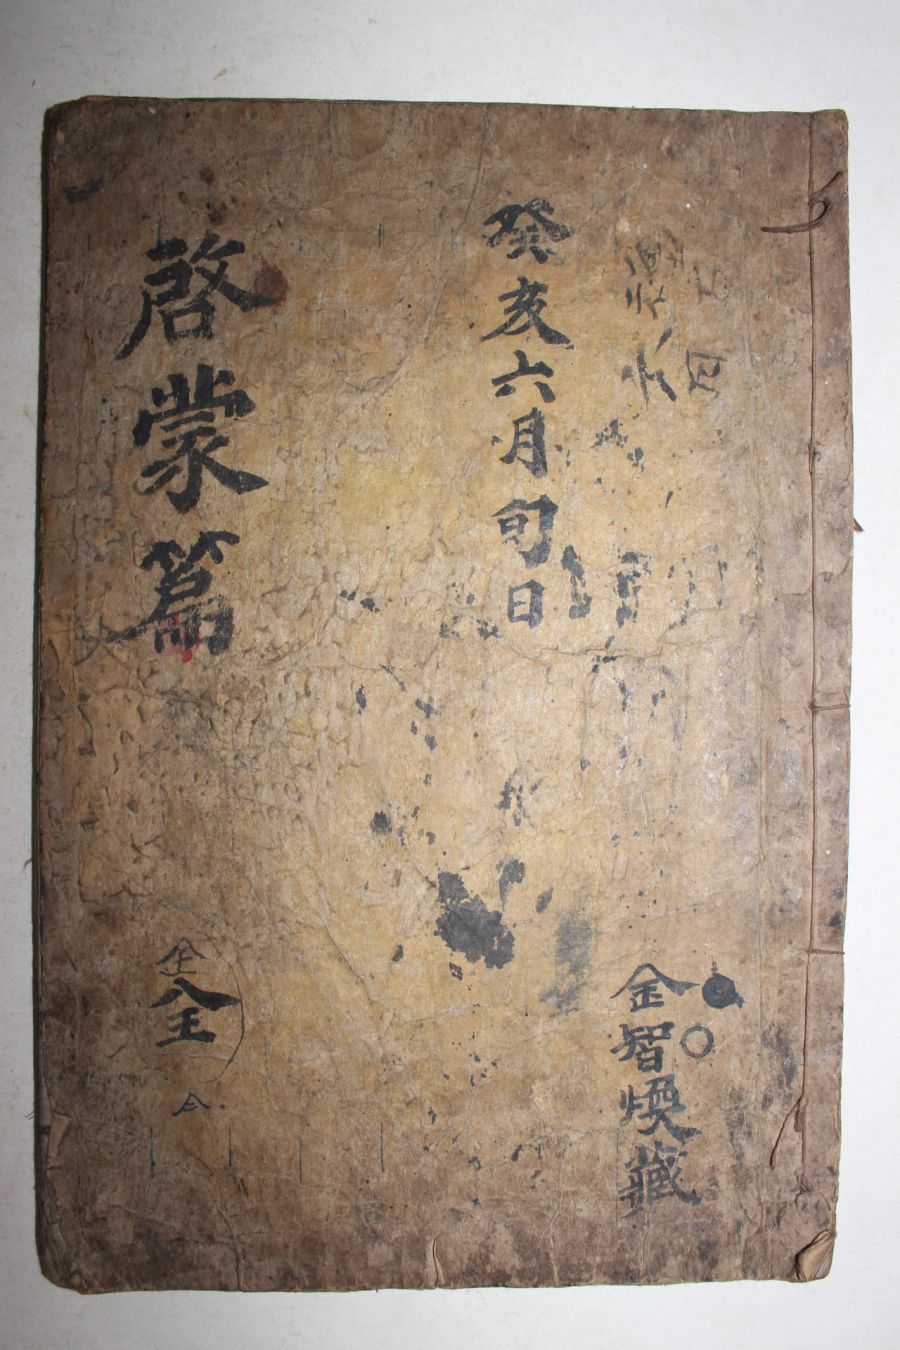 癸亥六月旬日
金智煥藏
啓蒙篇
全
全